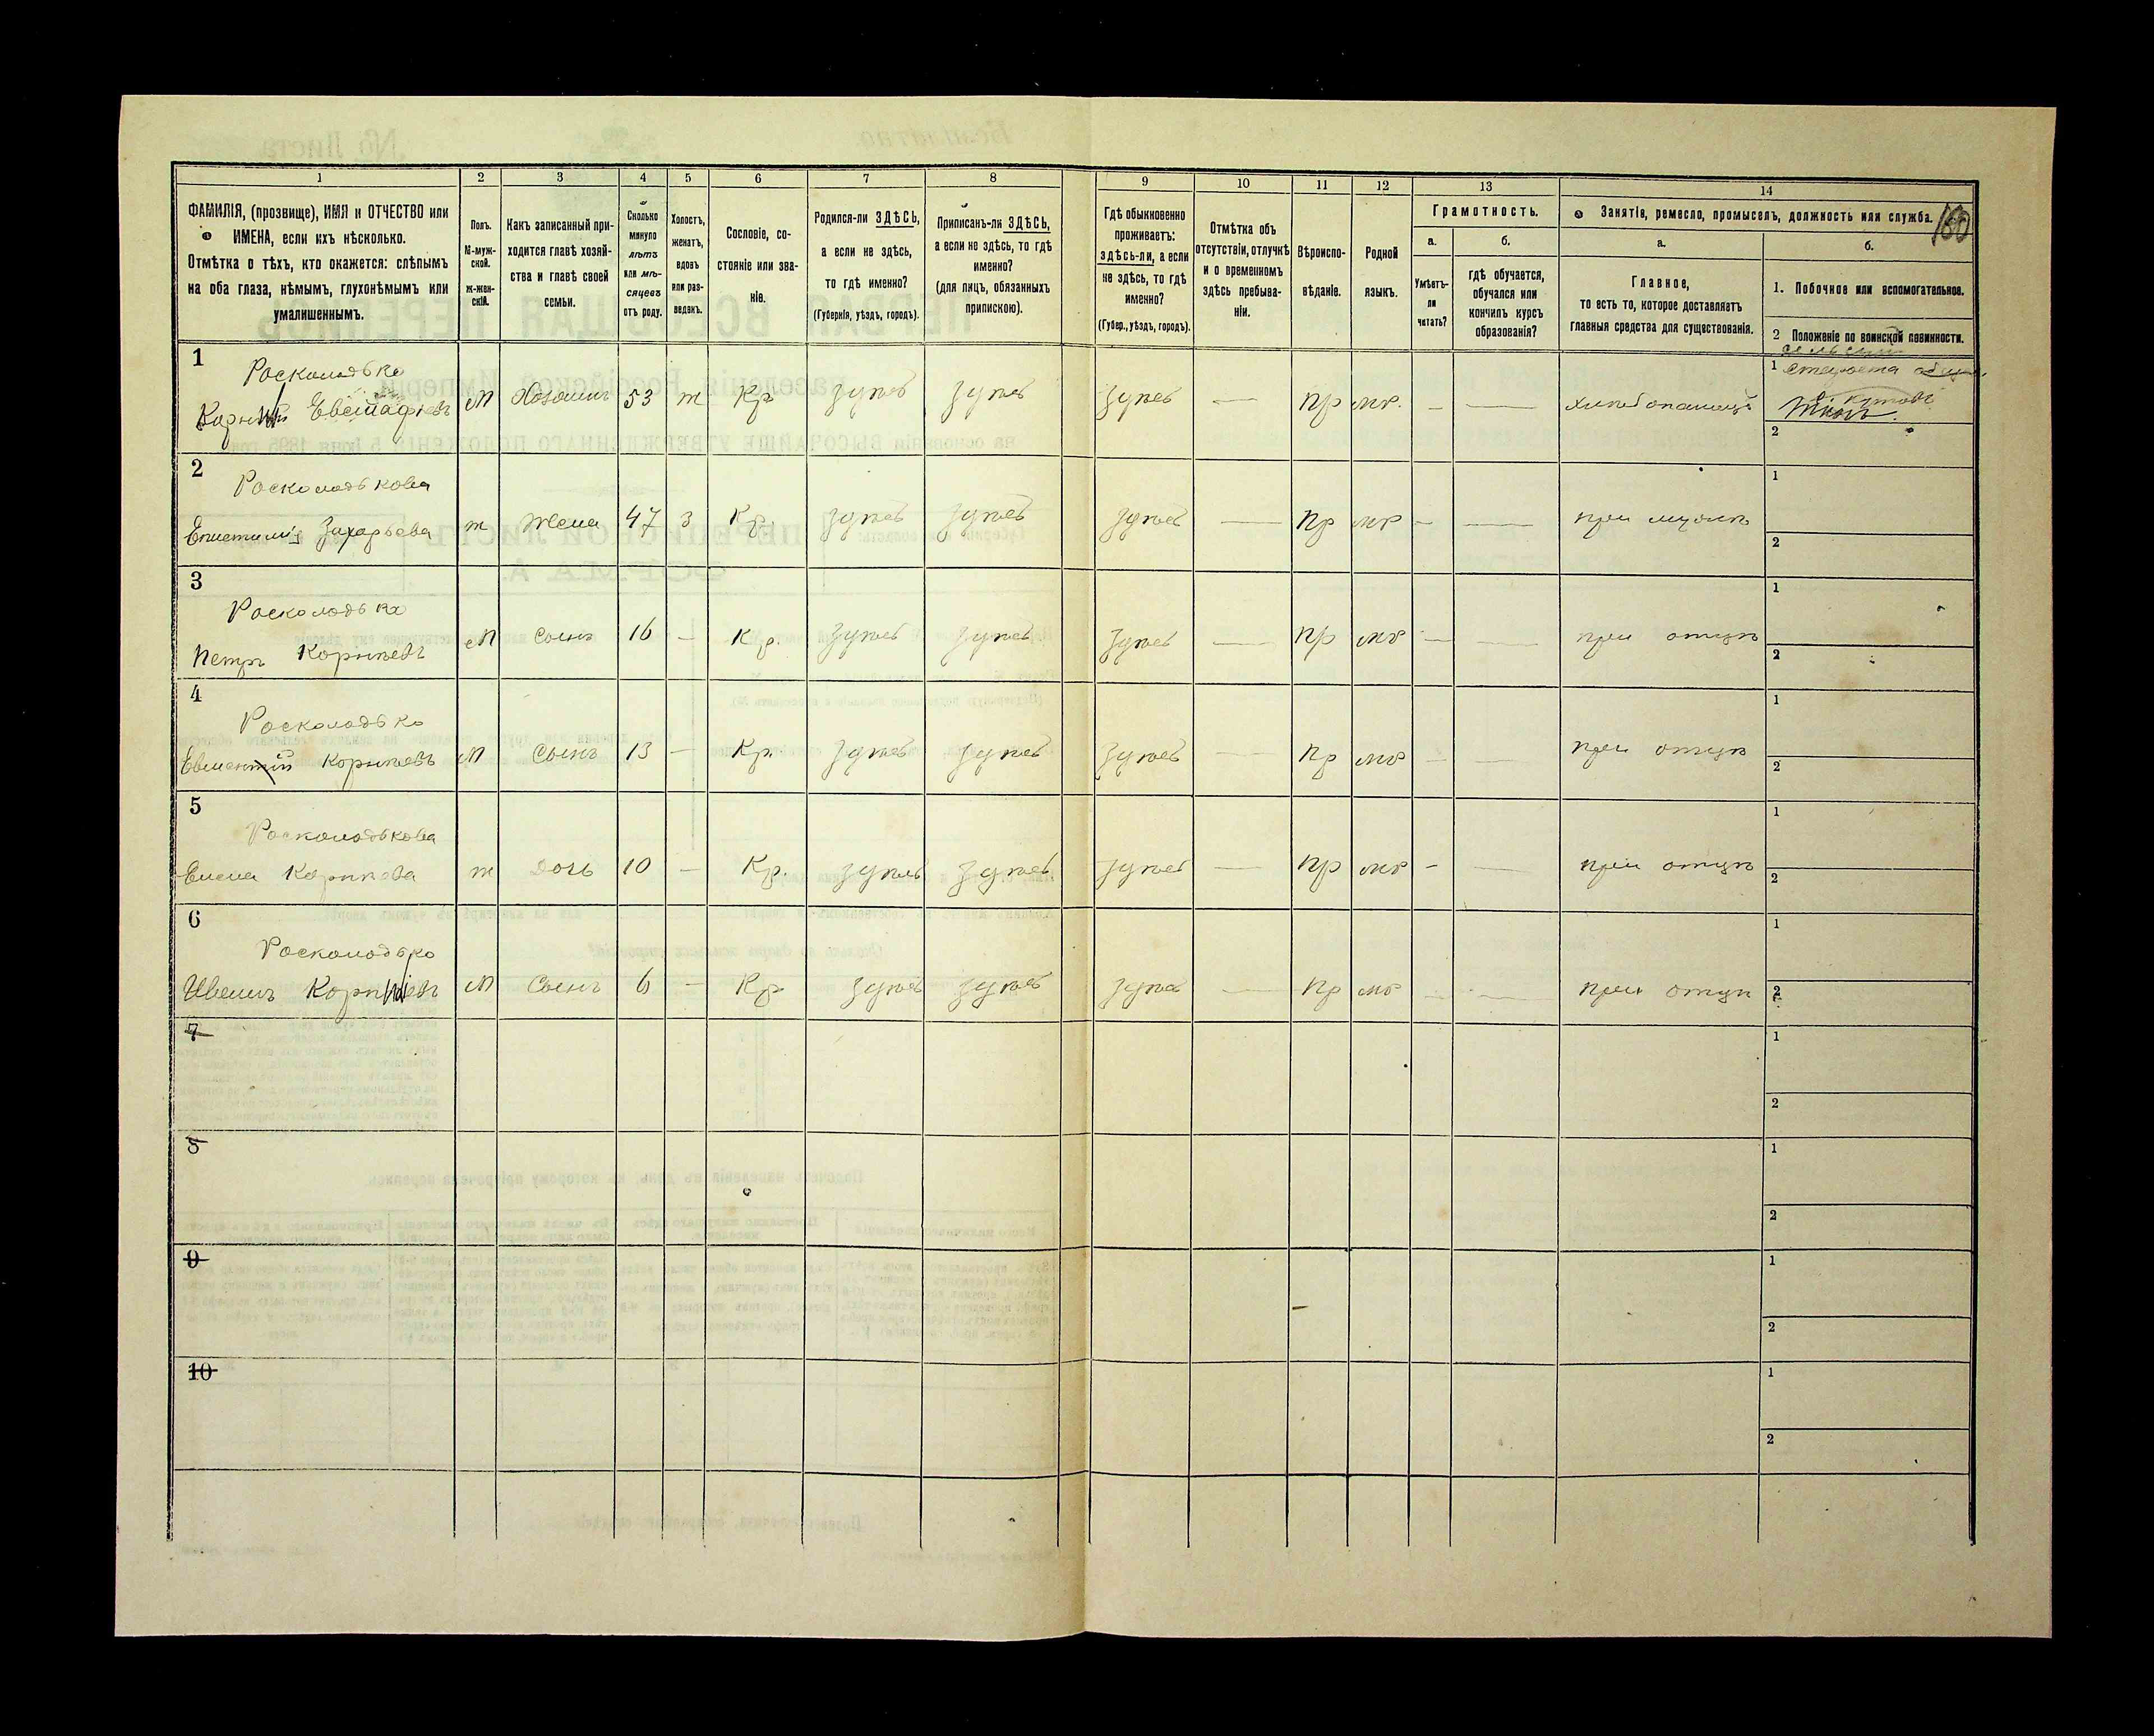 160
1 2 3 4 5 6 7 8 9 10 11 12 13 14
ФАМИЛІЯ, (прозвище), ИМЯ и ОТЧЕСТВО или
ИМЕНА, если ихъ нѣсколько.
Отмѣтка о тѣхъ, кто окажется: слѣпымъ
на оба глаза, нѣмымъ, глухонѣмымъ или
умалишеннымъ.
Полъ.
М-муж-
ской.
ж-жен-
скій.
Какъ записанный при-
ходится главѣ хозяй-
ства и главѣ своей
семьи.
Сколько
минуло
лѣтъ
или мѣ-
сяцевъ
отъ роду.
Холостъ,
женатъ,
вдовъ
или раз-
веденъ.
Сословіе, со-
стояніе или зва-
ніе.
Родился-ли ЗДѢСЬ,
а если не здѣсь,
то гдѣ именно?
(Губернія, уѣздъ, городъ).
Приписанъ-ли ЗДѢСЬ,
а если не здѣсь, то гдѣ
именно?
(для лицъ, обязанныхъ
припискою).
Гдѣ обыкновенно
проживаетъ:
здѣсь-ли, а если
не здѣсь, то гдѣ
именно?
(Губер., уѣздъ, городъ).
Отмѣтка объ
отсутствіи, отлучкѣ
и о временномъ
здѣсь пребыва-
ніи.
Вѣроиспо-
вѣданіе.
Родной
языкъ.
Грамотность.
а.
Умѣетъ-
ли
читать?
б.
гдѣ обучается,
обучался или
кончилъ курсъ
образованія?
Занятіе, ремесло, промыселъ, должность или служба.
а.
Главное,
то есть то, которое доставляетъ
главныя средства для существованія.
б.
1. Побочное или вспомогательное.
2 Положеніе по воинской повинности.
1
Росколодько
Корній Евстафіевъ М Хозяинъ 53 ж Кр здѣсь здѣсь здѣсь — пр мр. — — хлѣбопашецъ
1 староста
2
2
Росколодькова
Епистимія Захарьева ж жена 47 з Кр. здѣсь здѣсь здѣсь — пр мр — — при мужѣ
1
2
3
Росколодько
Петръ Корнѣевъ М сынъ 16 — Кр. здѣсь здѣсь здѣсь — пр мр — — при отцѣ
1
2
4
Росколодько
Евментій Корнѣевъ М сынъ 13 — Кр. здѣсь здѣсь здѣсь — пр мр — — при отцѣ
1
2
5
Росколодькова
Елена Корнѣева ж дочь 10 — Кр. здѣсь здѣсь здѣсь — пр мр — — при отцѣ
1
2
6
Росколодько
Иванъ Корніевъ М сынъ 6 — Кр здѣсь здѣсь здѣсь — пр мр — — при отцѣ
1
2
7
1
2
8
1
2
9
1
2
10
1
2